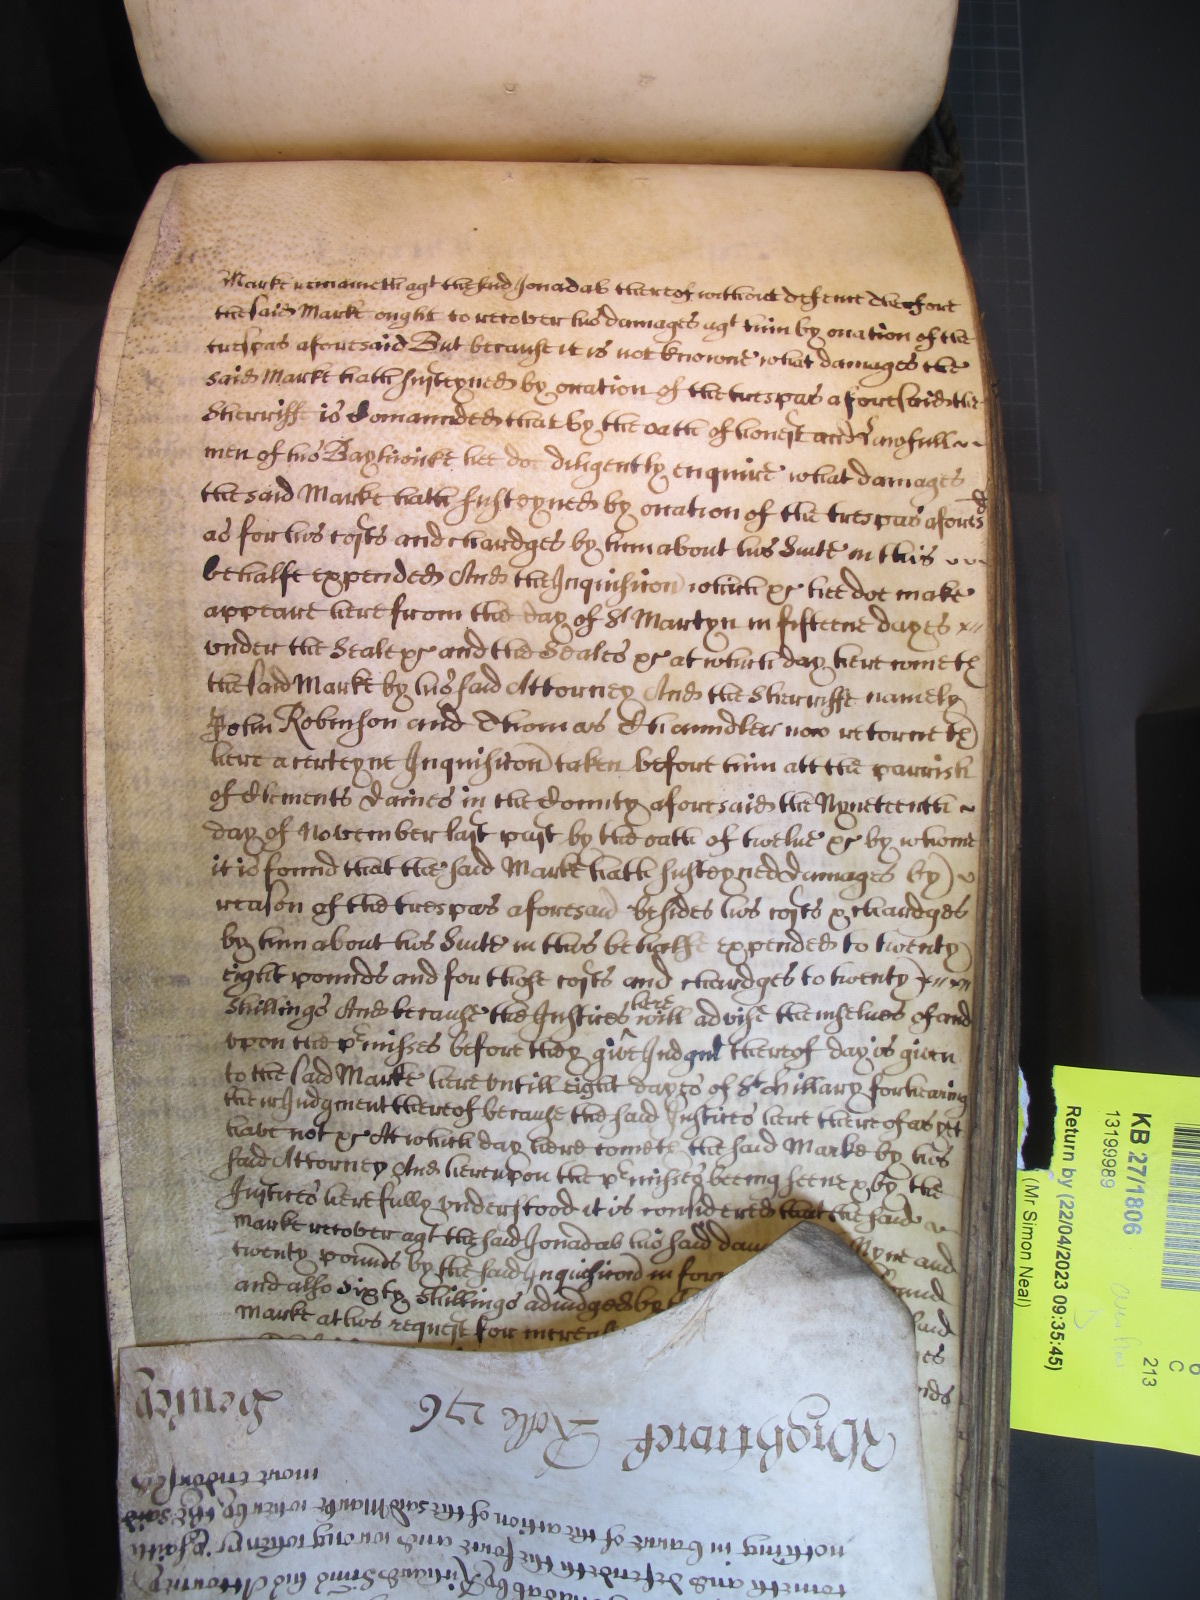 Marke remaineth agt the said Jonadab thereof without defence Therefore
the said Marke ought to recover his damages agt him by occation of the
trespas aforesaid But because it is not knowne what damages the
said Marke hath susteyned by occation of the trespas aforesaid the
Sherriffe is Comannded that by the oath of honest and lawfull
men of his Baylwicke hee doe diligently enquire what damages
the said Marke hath susteyned by occation of the trespas aforesd
as for his costs and chardges by him about his Suite in this
behalfe expended And the Inquisicon which &c hee doe make
appeare here from the day of St Martyn in fifteene dayes
under the Seale &c and the Seales &c at which day here cometh
the said Marke by his said Attorney And the Sherriffe namely
John Robinson and Thomas Chaundler now retorneth
here a certeyne Inquisicon taken before him att the parrish
of Clements Danes in the County aforesaid the Nyneteenth
day of November last past by the oath of twelve &c by whome
it is found that the said Marke hath susteyned damages by
reason of the trespas aforesaid besides his costs & chardges
by him about his Suite in this behalfe expended to twenty
eight pounds and for those costs and chardges to twenty
Shillings And because the Justices here will advise themselves of and
upon the premisses before they give Judgmt thereof day is given
to the said Marke here untill eight dayes of St Hillary for heareing
their Judgment thereof because the said Justices here thereof as yett
have not &c At which day here cometh the said Marke by his
said Attorney And hereupon the premisses beeing seene & by the
Justices here fully understood it is considered that the said
Marke recover agt the said Jonadab his said Nyne and
twenty pounds by the said Inquisicon in
and also Sixty Shillings adiudged by
Marke at his request for said
Henley
Wightwick Rolle 276
more endorsed
nothing in barre of the action of the said Marke wherby the said
cometh and defendeth the force and wrong when &c & saith
by Richard Sims his Attorney
KB 27/1806
13199989
Return by (22/04/2023 09:35:45)
(Mr Simon Neal)
6
C
213